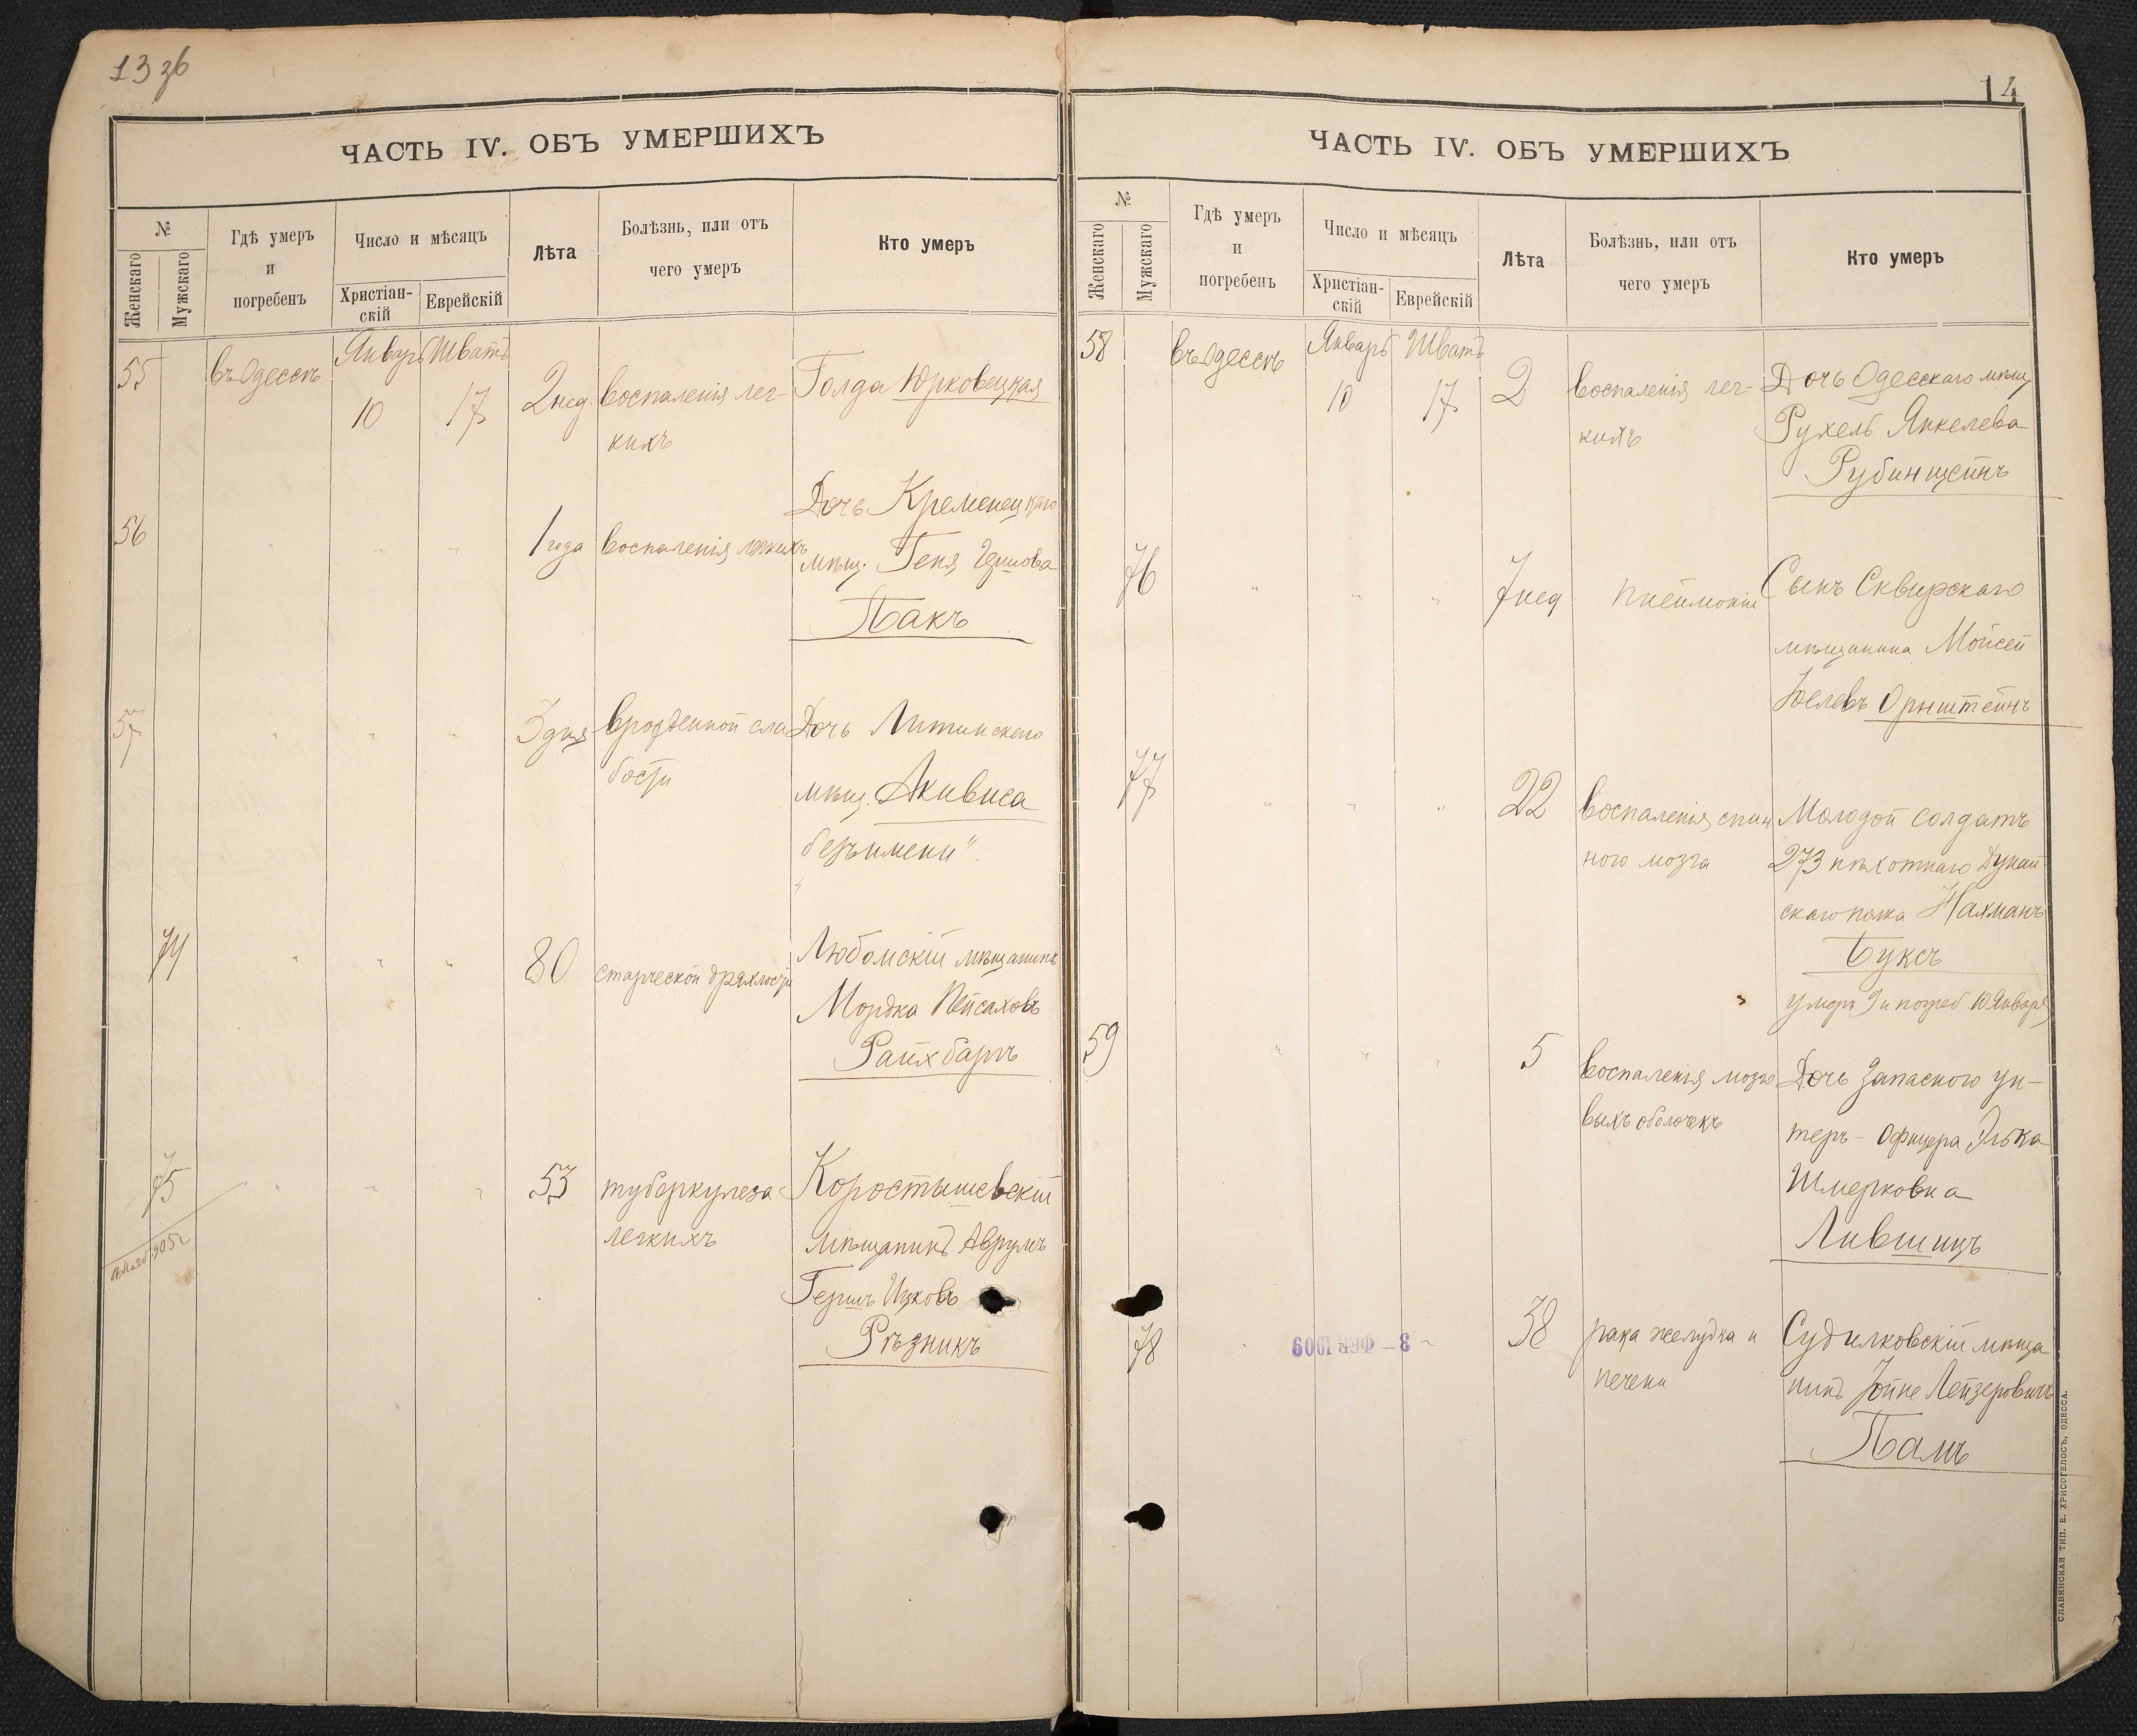 13 зб
ЧАСТЬ IV. ОБЪ УМЕРШИХЪ
№
Женскаго
Мужскаго
Гдѣ умеръ
и
погребенъ
Число и мѣсяцъ
Христіан-
скій
Еврейскій
Лѣта
Болѣзнь, или отъ
чего умеръ
Кто умеръ
55 въ Одессѣ Январь Шватъ
10 17 2 нед. воспаленія лег- Голда Юрковецкая
кихъ
Дочь Кременецкаго
56 " " " 1 года воспаленія легкихъ мѣщ. Геня
Пакъ
57 " " " 3 дня врожденной сла Дочь Литинскаго
бости мѣщ. Акивиса
безъ имени"
74 " " " 80 старческой дряхлости Любомскій мѣщанинъ
Мордка Пейсаховъ
Райхбартъ
75 " " " 53 туберкулеза Коростышевскій
легкихъ мѣщанинъ Аврумъ
Гершъ Ицковъ
Рѣзникъ
905 г
14
ЧАСТЬ IV. ОБЪ УМЕРШИХЪ
№
Женскаго
Мужскаго
Гдѣ умеръ
и
погребенъ
Число и мѣсяцъ
Христіан-
скій
Еврейскій
Лѣта
Болѣзнь, или отъ
чего умеръ
Кто умеръ
58 въ Одессѣ Январь Шватъ
10 17 2 воспаленія лег- Дочь Одесскаго мѣщ
кихъ Рухель Янкелева
Рубинщейнъ
76 " " " 7 нед пнеймоніи Сынъ Сквирскаго
мѣщанина Мойсей
Іоелевъ Орнштейнъ
77 " " " 22 воспаленія спин Молодой солдатъ
ного мозга 273 пѣхотнаго Дунай
скаго полка Нахманъ
Буксъ
умеръ 9 и погреб 10 Января
59 " " " 5 воспаленія мозго Дочь запасного ун-
выхъ оболочекъ теръ-офицера Элька
Шмерковна
Лившицъ
78 " 3 - ФЕВ 1909 " 38 рака желудка и Судилковскій мѣща
печени нинъ Іойне Лейзеровичъ
Памъ
СЛАВЯНСКАЯ ТИП. Е. ХРИСОГЕЛОСЪ, ОДЕССА.